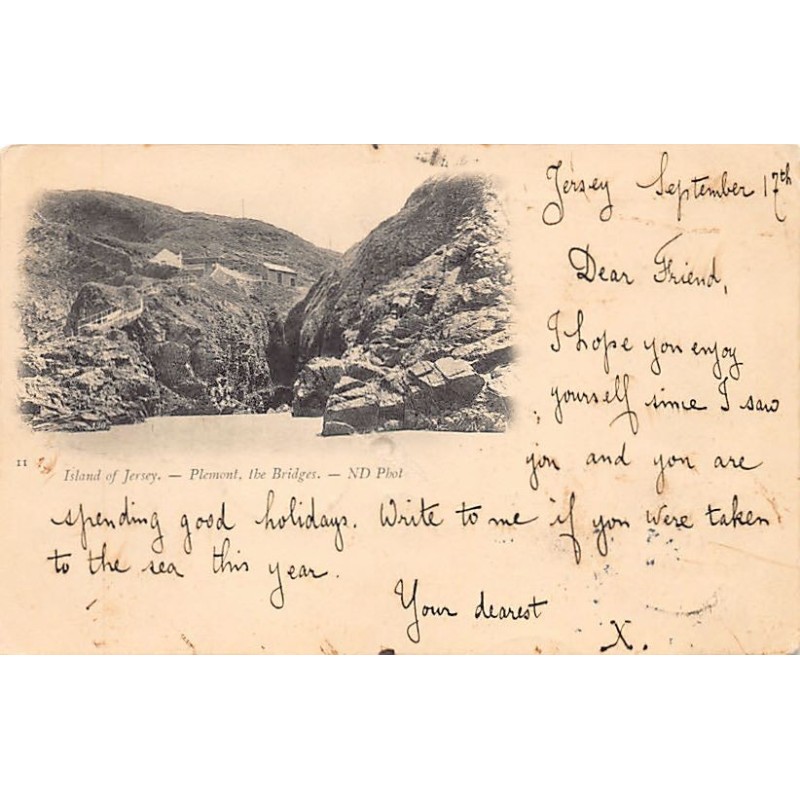 Jersey September 17th
Dear Friend,
I hope you enjoy
yourself since I saw
you and you are
11
Island of Jersey. — Plemont, the Bridges. — ND Phot
spending good holidays. Write to me if you were taken
to the sea this year.
Your dearest
X.